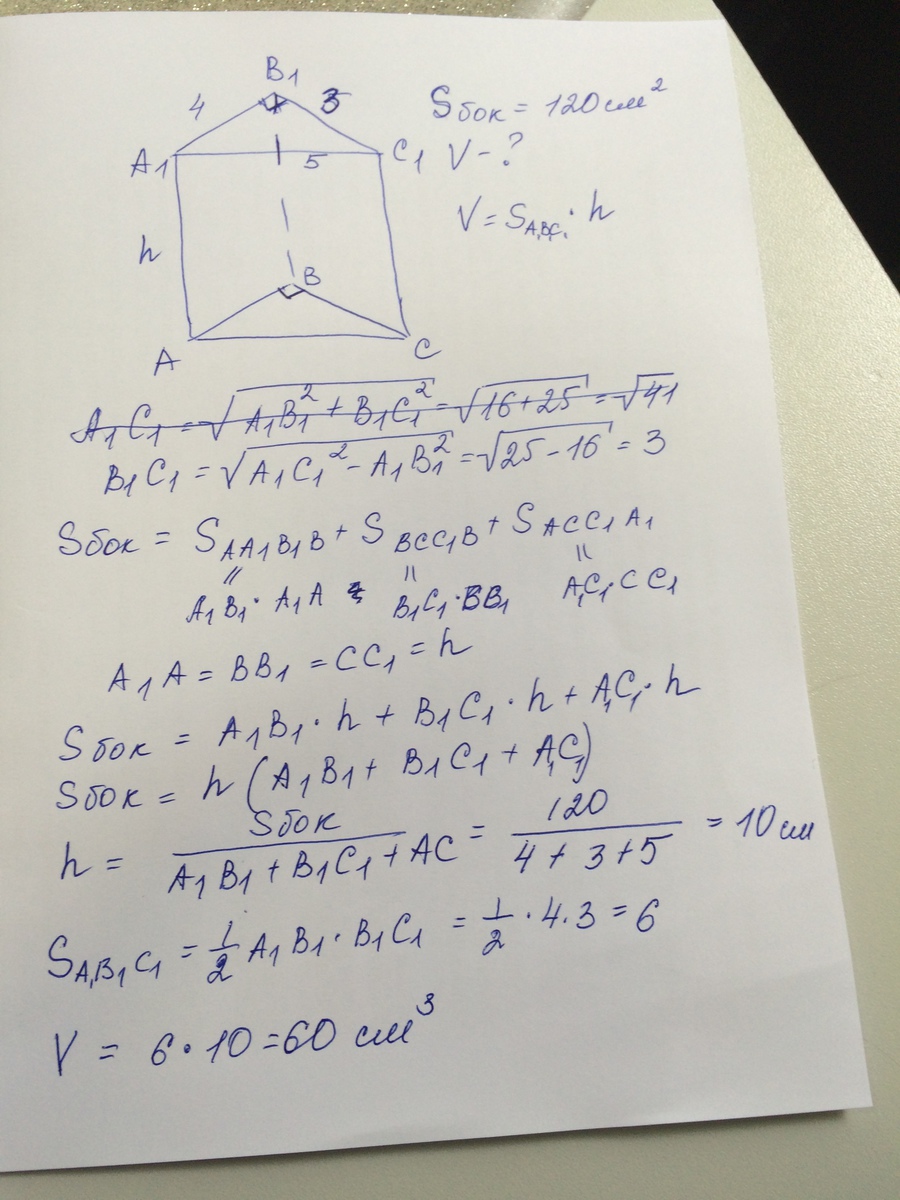 B1
4 3
A1 5 C1
h
B
A C
Sбок = 120 см²
V - ?
V = SA1B1C1 · h
A1C1 = √(A1B1² + B1C1²) = √(16+25) = √41
B1C1 = √(A1C1² - A1B1²) = √(25-16) = 3
Sбок = SAA1B1B + SBCC1B + SACC1A1
A1B1 · A1A B1C1 · BB1 A1C1 · CC1
A1A = BB1 = CC1 = h
Sбок = A1B1 · h + B1C1 · h + A1C1 · h
Sбок = h (A1B1 + B1C1 + A1C1)
h = Sбок / (A1B1 + B1C1 + AC) = 120 / (4 + 3 + 5) = 10 см
SA1B1C1 = 1/2 A1B1 · B1C1 = 1/2 · 4 · 3 = 6
V = 6 · 10 = 60 см³